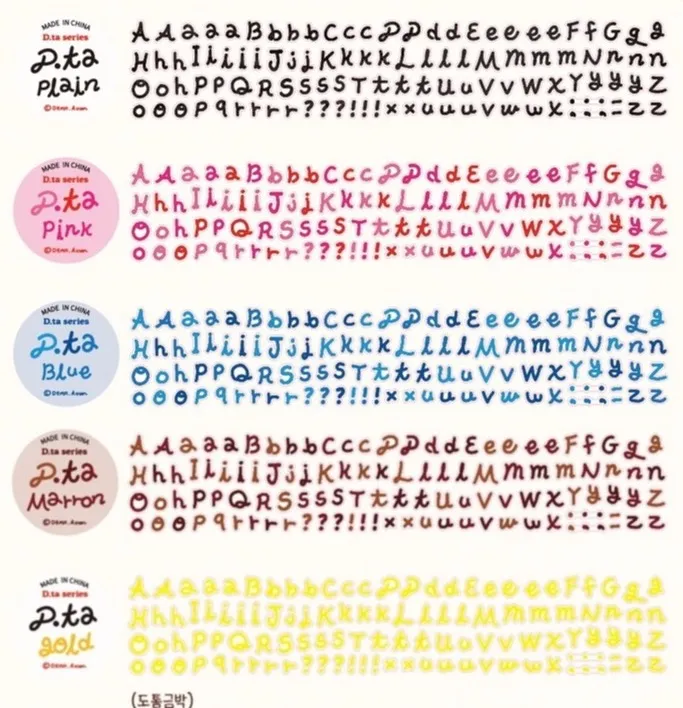 MADE IN CHINA
D.ta series
D.ta
Plain
A A a a a B b b b C c c D D d d E e e e e F f G g g
H h h I i i i i J j j K k k k L l l l M m m m N n n n
O o h P P Q R S S S S T t t t U u V v W X Y y y y Z
o o o P q r r r r ? ? ? ! ! ! x x u u u v w w x z z
MADE IN CHINA
D.ta series
D.ta
Pink
A A a a a B b b b C c c D D d d E e e e e F f G g g
H h h I i i i i J j j K k k k L l l l M m m m N n n n
O o h P P Q R S S S S T t t t U u V v W X Y y y y Z
o o o P q r r r r ? ? ? ! ! ! x x u u u v w w x z z
MADE IN CHINA
D.ta series
D.ta
Blue
A A a a a B b b b C c c D D d d E e e e e F f G g g
H h h I i i i i J j j K k k k L l l l M m m m N n n n
O o h P P Q R S S S S T t t t U u V v W X Y y y y Z
o o o P q r r r r ? ? ? ! ! ! x x u u u v w w x z z
MADE IN CHINA
D.ta series
D.ta
Marron
A A a a a B b b b C c c D D d d E e e e e F f G g g
H h h I i i i i J j j K k k k L l l l M m m m N n n n
O o h P P Q R S S S S T t t t U u V v W X Y y y y Z
o o o P q r r r r ? ? ? ! ! ! x x u u u v w w x z z
MADE IN CHINA
D.ta series
D.ta
gold
A A a a a B b b b C c c D D d d E e e e e F f G g g
H h h I i i i i J j j K k k k L l l l M m m m N n n n
O o h P P Q R S S S S T t t t U u V v W X Y y y y Z
o o o P q r r r r ? ? ? ! ! ! x x u u u v w w x z z
(도톰금박)